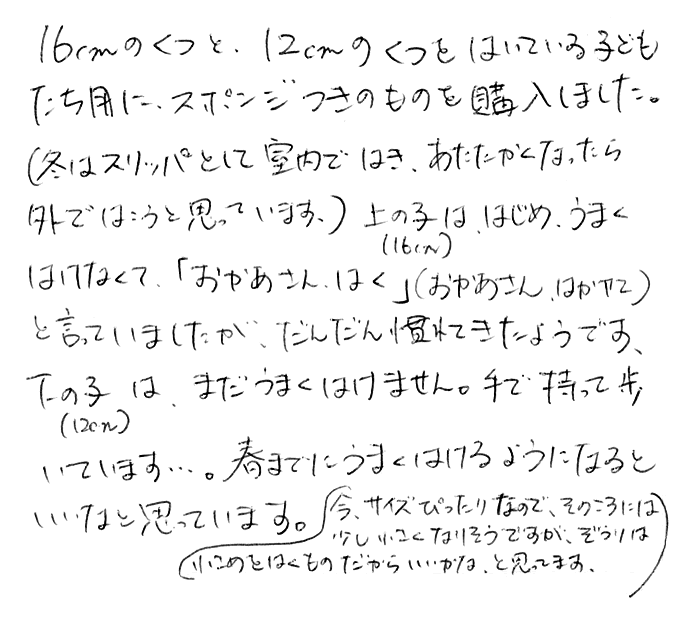 16cmのくつと、12cmのくつをはいている子ども
たち用に、スポンジつきのものを購入しました。
(冬はスリッパとして室内ではき、あたたかくなったら
外ではこうと思っています。)上の子は、はじめ、うまく
(16cm)
はけなくて、「おかあさん、はく」(おかあさん、はかせて)
と言っていましたが、だんだん慣れてきたようです、
下の子は、まだうまくはけません。手で持って歩
(12cm)
いています…。春までにうまくはけるようになると
いいなと思っています。
(今、サイズぴったりなので、そのころには
少し小さくなりそうですが、ぞうりは
小さめをはくものだからいいかな、と思ってます。)